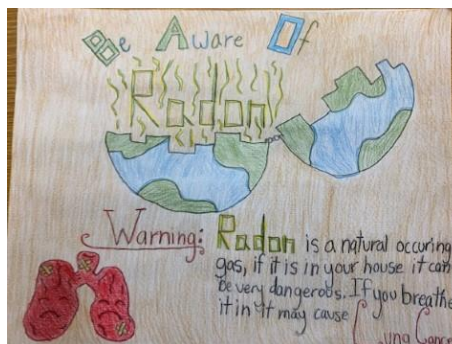 Be Aware Of
Radon
Warning: Radon is a natural occuring
gas, if it is in your house it can
be very dangerous. If you breathe
it in it may cause Lung Cance